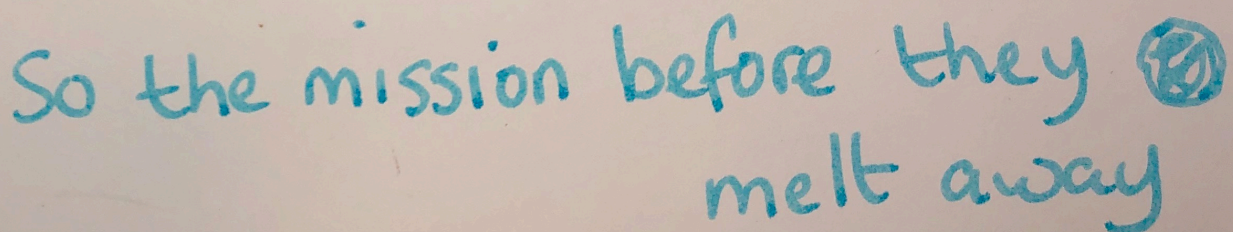 So the mission before they
melt away